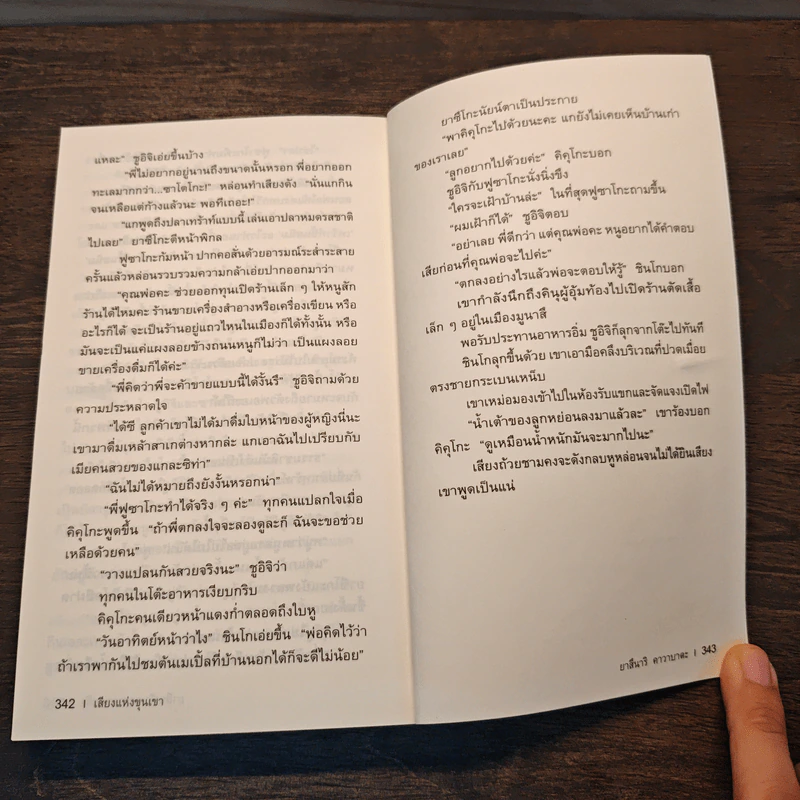 แหละ” ชูอิจิเอ่ยขึ้นบ้าง
“พี่ไม่อยากอยู่นานถึงขนาดนั้นหรอก พี่อยากออก
ทะเลมากกว่า...ซาโตโกะ!” หล่อนทำเสียงดัง “นั่นแกกิน
จนเหลือแต่ก้างแล้วนะ พอทีเถอะ!”
“แกพูดถึงปลาเทร้าท์แบบนี้ เล่นเอาปลาหมดรสชาติ
ไปเลย” ยาซึโกะตีหน้าพิกล
ฟูซาโกะก้มหน้า ปากคอสั่นด้วยอารมณ์ระส่ำระสาย
ครั้นแล้วหล่อนรวบรวมความกล้าเอ่ยปากออกมาว่า
“คุณพ่อคะ ช่วยออกทุนเปิดร้านเล็ก ๆ ให้หนูสัก
ร้านได้ไหมคะ ร้านขายเครื่องสำอางหรือเครื่องเขียน หรือ
อะไรก็ได้ จะเป็นร้านอยู่แถวไหนในเมืองก็ได้ทั้งนั้น หรือ
มันจะเป็นแค่แผงลอยข้างถนนหนูก็ไม่ว่า เป็นแผงลอย
ขายเครื่องดื่มก็ได้ค่ะ”
“พี่คิดว่าพี่จะค้าขายแบบนี้ได้งั้นรึ” ชูอิจิถามด้วย
ความประหลาดใจ
“ได้ซี ลูกค้าเขาไม่ได้มาดื่มใบหน้าของผู้หญิงนี่นะ
เขามาดื่มเหล้าสาเกต่างหากล่ะ แกเอาฉันไปเปรียบกับ
เมียคนสวยของแกละซิท่า”
“ฉันไม่ได้หมายถึงยังงั้นหรอกน่า”
“พี่ฟูซาโกะทำได้จริง ๆ ค่ะ” ทุกคนแปลกใจเมื่อ
คิคุโกะพูดขึ้น “ถ้าพี่ตกลงใจจะลองดูละก็ ฉันจะขอช่วย
เหลือด้วยคน”
“วางแปลนกันสวยจริงนะ” ชูอิจิว่า
ทุกคนในโต๊ะอาหารเงียบกริบ
คิคุโกะคนเดียวหน้าแดงก่ำตลอดถึงใบหู
“วันอาทิตย์หน้าว่าไง” ชินโกเอ่ยขึ้น “พ่อคิดไว้ว่า
ถ้าเราพากันไปชมต้นเมเปิ้ลที่บ้านนอกได้ก็จะดีไม่น้อย”
342 | เสียงแห่งขุนเขา
ยาซึโกะนัยน์ตาเป็นประกาย
“พาคิคุโกะไปด้วยนะคะ แกยังไม่เคยเห็นบ้านเก่า
ของเราเลย”
“ลูกอยากไปด้วยค่ะ” คิคุโกะบอก
ชูอิจิกับฟูซาโกะนั่งนิ่งขึง
“ใครจะเฝ้าบ้านล่ะ” ในที่สุดฟูซาโกะถามขึ้น
“ผมเฝ้าก็ได้” ชูอิจิตอบ
“อย่าเลย พี่ดีกว่า แต่คุณพ่อคะ หนูอยากได้คำตอบ
เสียก่อนที่คุณพ่อจะไปค่ะ”
“ตกลงอย่างไรแล้วพ่อจะตอบให้รู้” ชินโกบอก
เขากำลังนึกถึงคินุผู้อุ้มท้องไปเปิดร้านตัดเสื้อ
เล็ก ๆ อยู่ในเมืองมูนาสึ
พอรับประทานอาหารอิ่ม ชูอิจิก็ลุกจากโต๊ะไปทันที
ชินโกลุกขึ้นด้วย เขาเอามือคลึงบริเวณที่ปวดเมื่อย
ตรงชายกระเบนเหน็บ
เขาเหม่อมองเข้าไปในห้องรับแขกและจัดแจงเปิดไฟ
“น้ำเต้าของลูกหย่อนลงมาแล้วละ” เขาร้องบอก
คิคุโกะ “ดูเหมือนน้ำหนักมันจะมากไปนะ”
เสียงถ้วยชามคงจะดังกลบหูหล่อนจนไม่ได้ยินเสียง
เขาพูดเป็นแน่
ยาสึนาริ คาวาบาตะ | 343